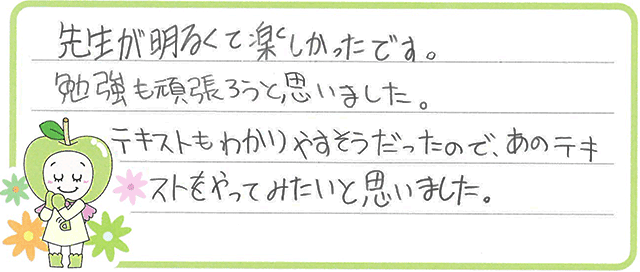 先生が明るくて楽しかったです。
勉強も頑張ろうと思いました。
テキストもわかりやすそうだったので、あのテキ
ストをやってみたいと思いました。